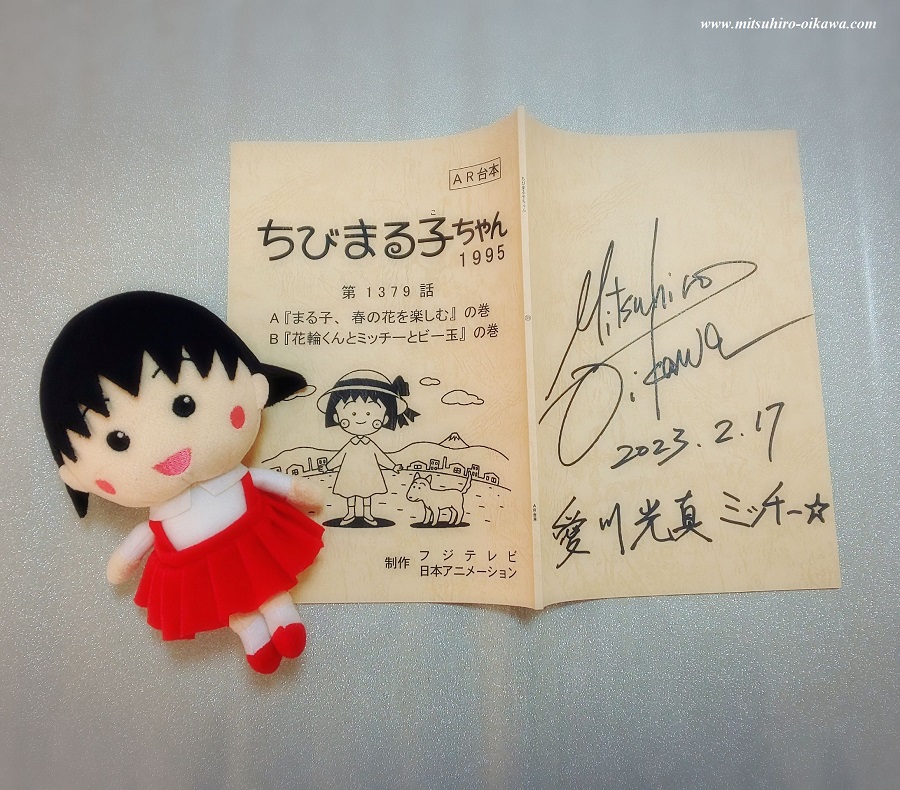 www.mitsuhiro-oikawa.com
AR台本
こ
ちびまる子ちゃん
1995
第 1379 話
A『まる子、春の花を楽しむ』の巻
B『花輪くんとミッチーとビー玉』の巻
制作 フジテレビ
日本アニメーション
ちびまる子ちゃん
AR台本
Mitsuhiro
Oikawa
2023.2.17
愛川光真 ミッチー☆